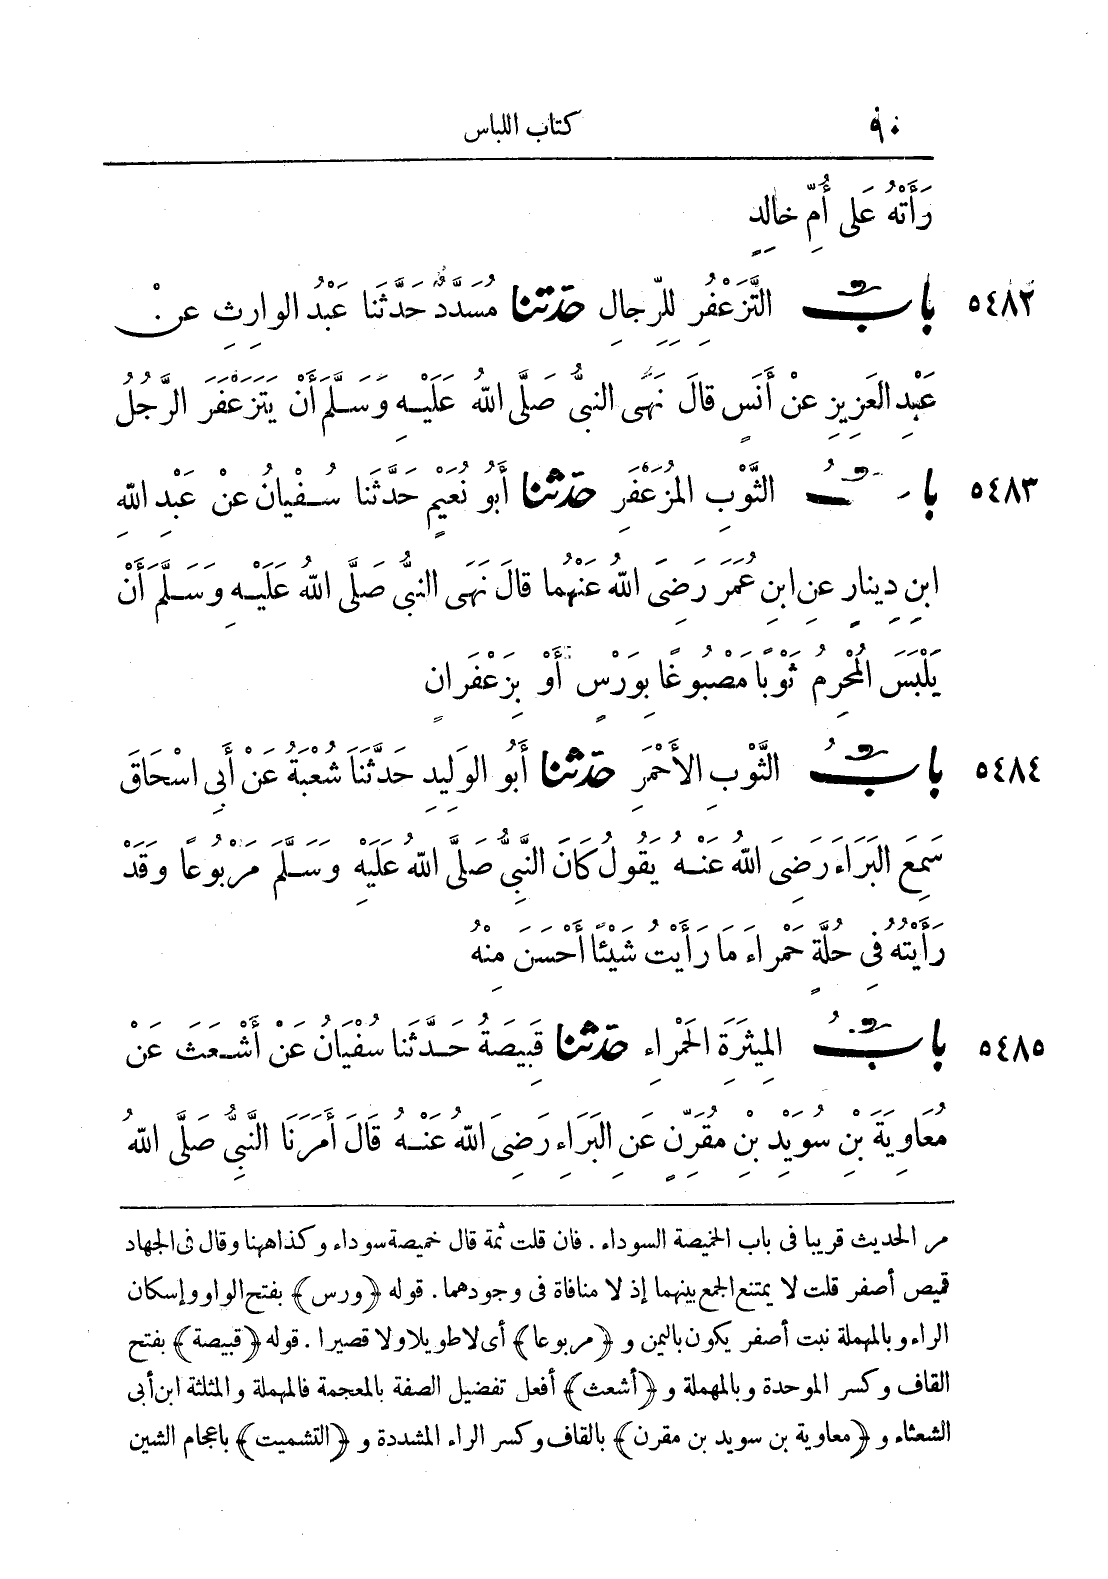 ٩٠ كتاب اللباس
رَأَتْهُ عَلَى أُمِّ خَالِدٍ
٥٤٨٢ بَابُ التَّزَعْفُرِ لِلرِّجَالِ حَدَّثَنَا مُسَدَّدٌ حَدَّثَنَا عَبْدُ الوَارِثِ عَنْ
عَبْدِ العَزِيزِ عَنْ أَنَسٍ قَالَ نَهَى النبىُّ صَلَّى اللهُ عَلَيْهِ وَسَلَّمَ أَنْ يَتَزَعْفَرَ الرَّجُلُ
٥٤٨٣ بَابُ الثَّوْبِ المُزَعْفَرِ حَدَّثَنَا أَبُو نُعَيْمٍ حَدَّثَنَا سُفْيَانُ عَنْ عَبْدِ اللهِ
ابنِ دِينارٍ عَنِ ابنِ عُمَرَ رَضِىَ اللهُ عَنْهُمَا قَالَ نَهَى النبىُّ صَلَّى اللهُ عَلَيْهِ وَسَلَّمَ أَنْ
يَلْبَسَ المُحْرِمُ ثَوْبًا مَصْبُوغًا بِوَرْسٍ أَوْ بِزَعْفَرانٍ
٥٤٨٤ بَابُ الثَّوْبِ الأَحْمَرِ حَدَّثَنَا أَبُو الوَلِيدِ حَدَّثَنَا شُعْبَةُ عَنْ أَبِى اسْحَاقَ
سَمِعَ البَرَاءَ رَضِىَ اللهُ عَنْهُ يَقُولُ كَانَ النَّبِىُّ صَلَّى اللهُ عَلَيْهِ وَسَلَّمَ مَرْبُوعًا وَقَدْ
رَأَيْتُهُ فِى حُلَّةٍ حَمْراءَ مَا رَأَيْتُ شَيْئًا أَحْسَنَ مِنْهُ
٥٤٨٥ بَابُ المِيثَرَةِ الحَمْراءِ حَدَّثَنَا قَبِيصَةُ حَدَّثَنَا سُفْيَانُ عَنْ أَشْعَثَ عَنْ
مُعَاوِيَةَ بْنِ سُوَيْدِ بْنِ مُقَرِّنٍ عَنِ البَرَاءِ رَضِىَ اللهُ عَنْهُ قَالَ أَمَرَنَا النَّبِىُّ صَلَّى اللهُ
مر الحديث قريبا فى باب الخميصة السوداء . فان قلت ثمة قال خميصة سوداء وكذا ههنا وقال فى الجهاد
قميص أصفر قلت لا يمتنع الجمع بينهما إذ لا منافاة فى وجودهما . قوله ﴿ورس﴾ بفتح الواو وإسكان
الراء وبالمهملة نبت أصفر يكون باليمن و ﴿مربوعا﴾ أى لاطويلا ولا قصيرا . قوله ﴿قبيصة﴾ بفتح
القاف وكسر الموحدة وبالمهملة و ﴿أشعث﴾ أفعل تفضيل الصفة بالمعجمة فالمهملة والمثلثة ابن أبى
الشعثاء و ﴿معاوية بن سويد بن مقرن﴾ بالقاف وكسر الراء المشددة و ﴿التشميت﴾ باعجام الشين